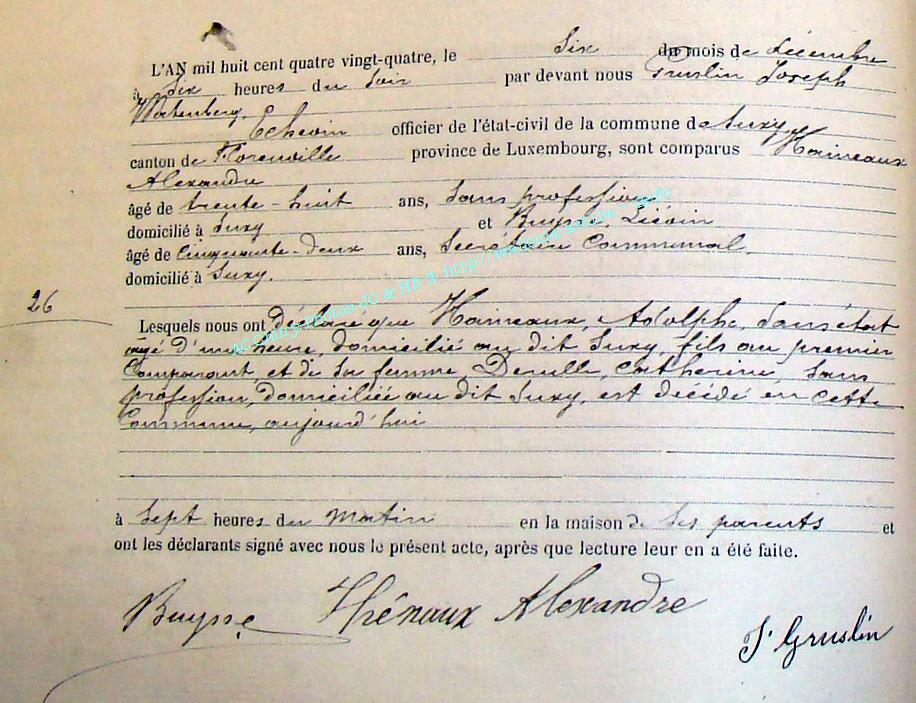 L'AN mil huit cent quatre vingt-quatre, le Six du mois de Décembre
à Six heures du Soir par devant nous Gruslin Joseph
Echevin officier de l'état-civil de la commune de Suxy
canton de Florenville province de Luxembourg, sont comparus Haineaux
Alexandre
âgé de trente-huit ans, Sans profession
domicilié à Suxy et Buysse, Liévin
âgé de Cinquante-deux ans, Secrétaire Communal,
domicilié à Suxy.
26
Lesquels nous ont déclaré que Haineaux, Adolphe, Sans état
agé d'une heure, domicilié au dit Suxy, fils au premier
Comparant et de Sa femme, Catherine, Sans
profession, domiciliée au dit Suxy, est décédé en cette
Commune, aujourd'hui
à Sept heures du Matin en la maison de Ses parents et
ont les déclarants signé avec nous le présent acte, après que lecture leur en a été faite.
Buysse Hénaux Alexandre
J Gruslin